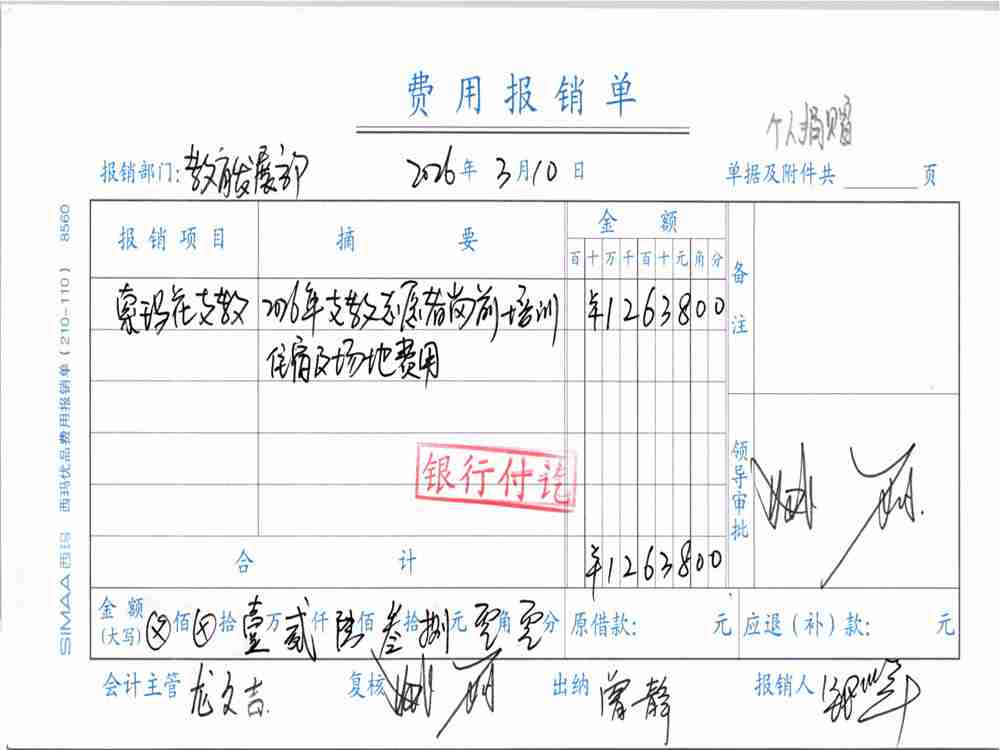 费用报销单
个人捐赠
报销部门:教育发展部 2026年3月10日 单据及附件共 页
报销项目 摘要 金额 备注
百十万千百十元角分
索玛花支教 2026年支教志愿者岗前培训 ¥1263800
住宿及场地费用
银行付讫
领导审批
合计 ¥1263800
金额(大写) ⊗佰⊗拾壹万贰仟陆佰叁拾捌元零角零分 原借款: 元 应退(补)款: 元
会计主管 龙文吉 复核 出纳 曾静 报销人
SIMAA 西玛 西玛优品费用报销单(210-110) 8560